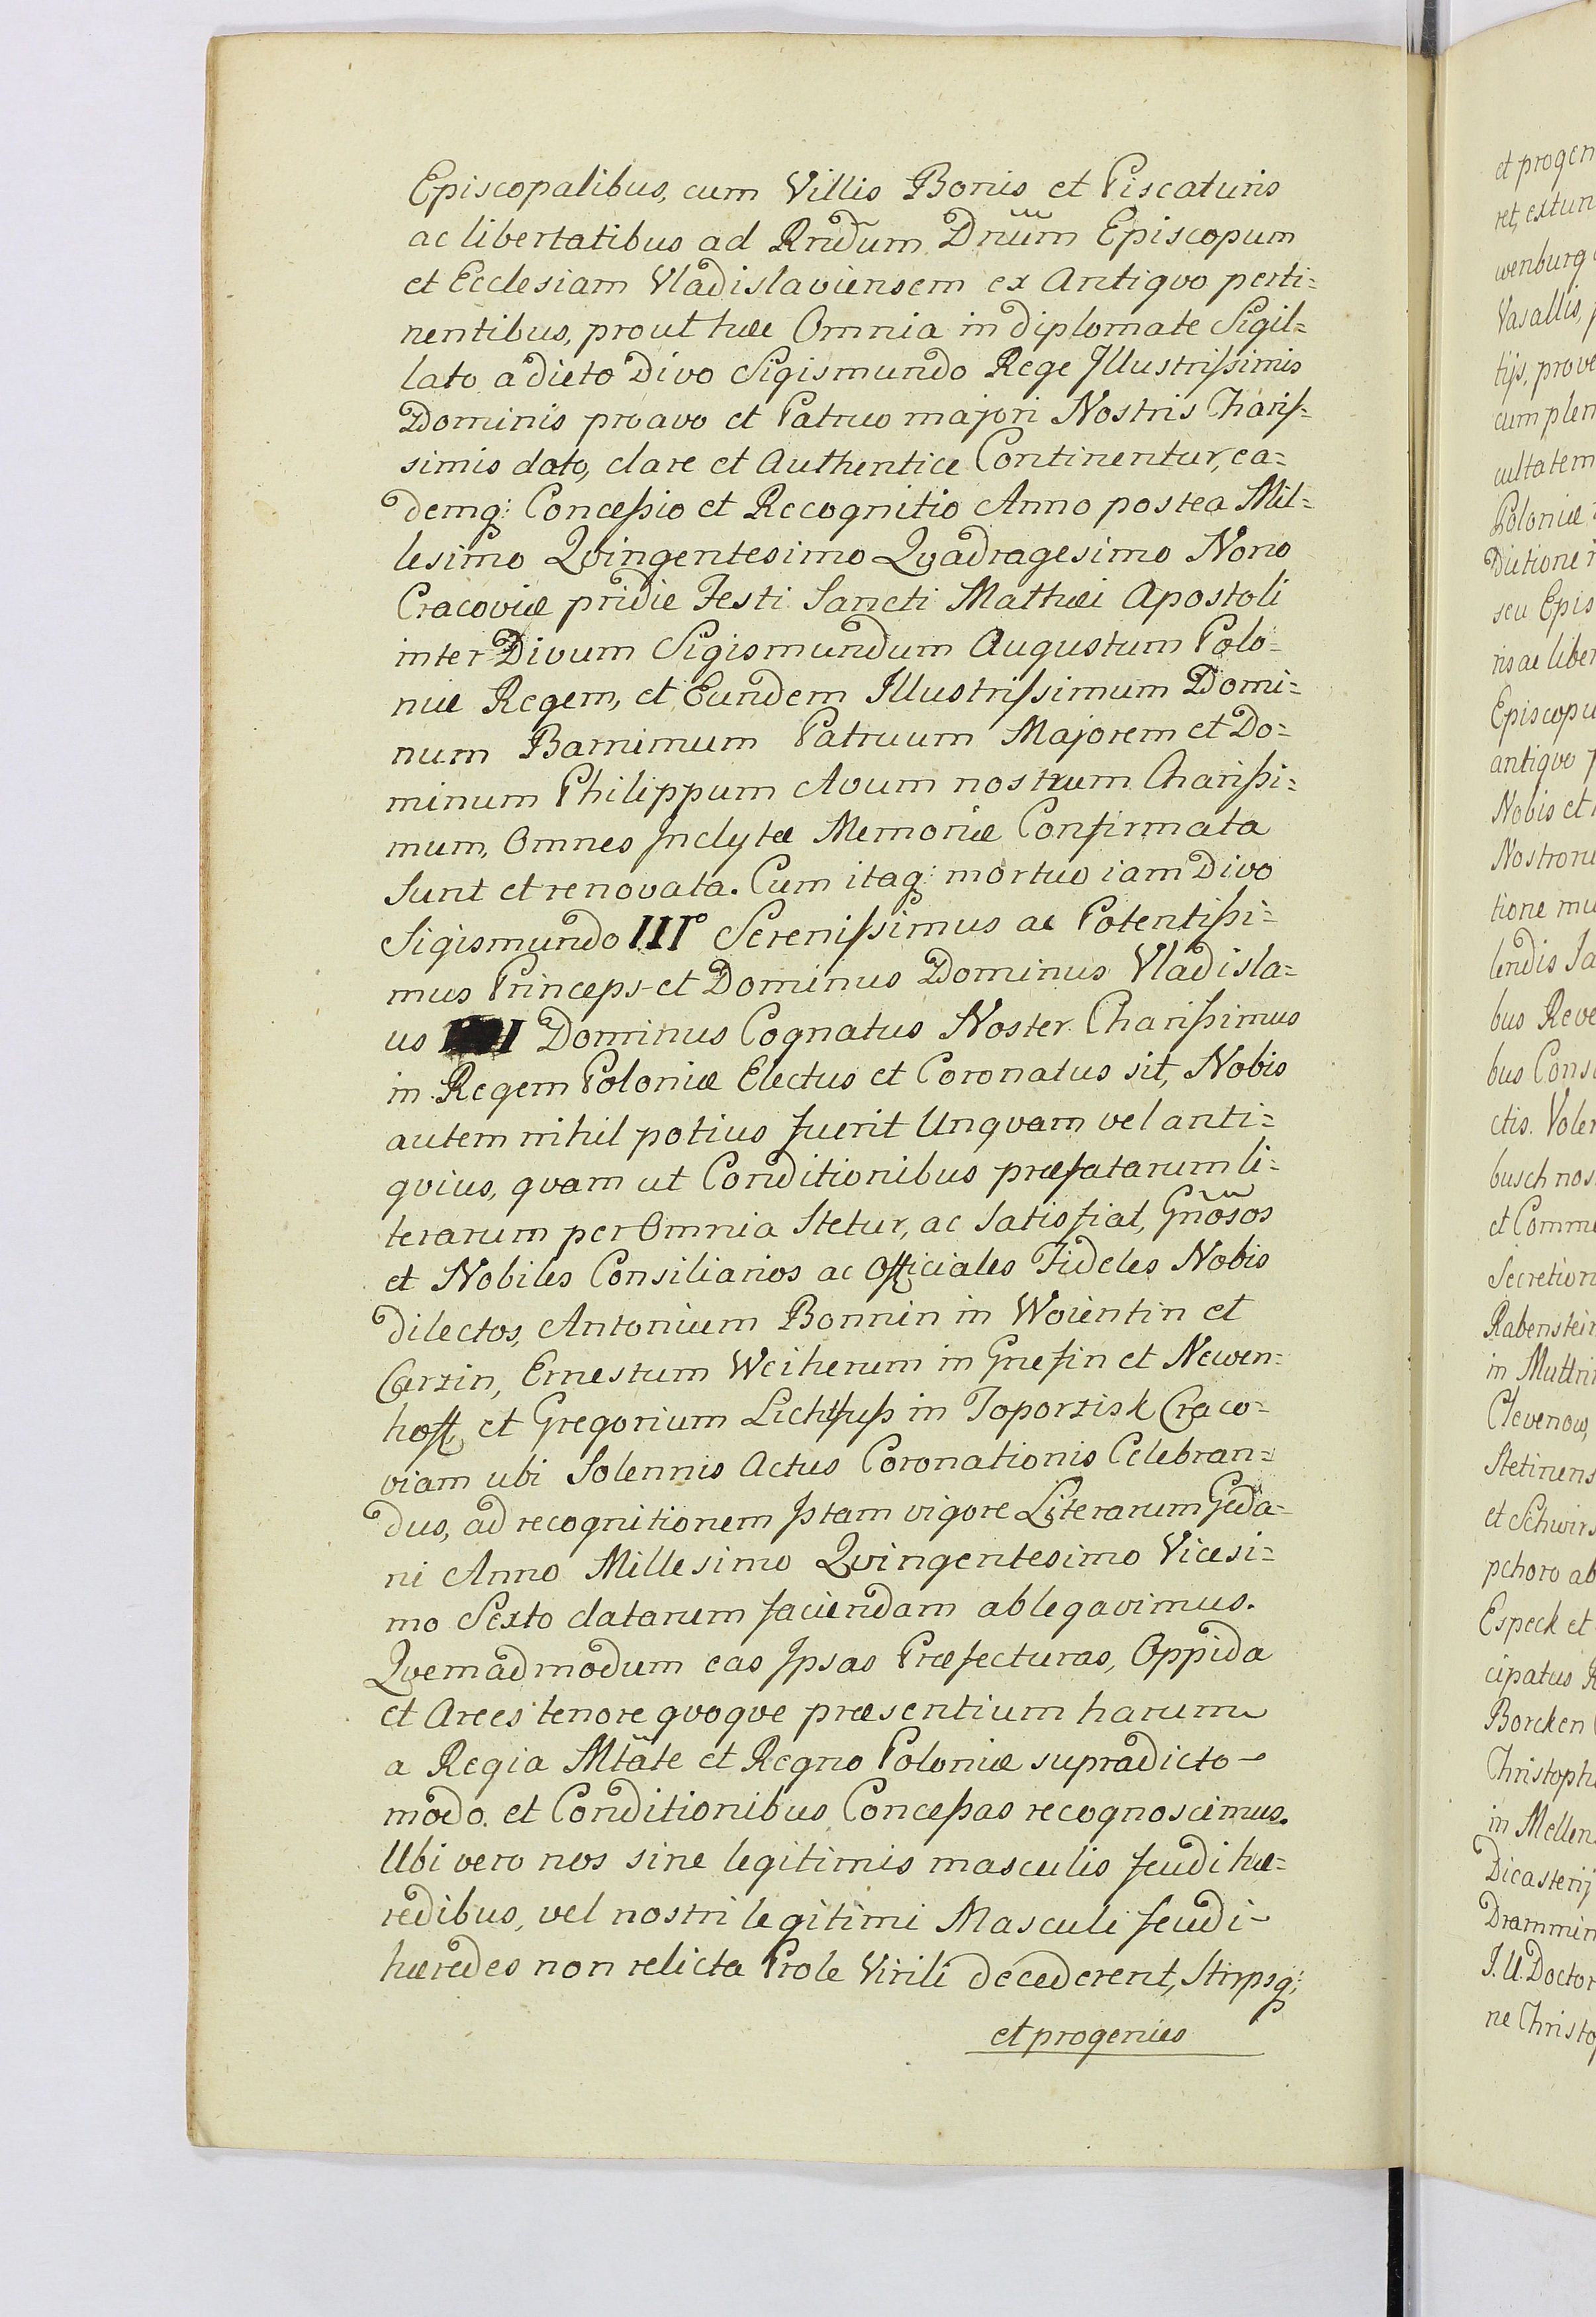 Episcopalibus, cum Villis Bonis et Piscaturis
ac libertatibus ad Rndum Dnum Episcopum
et Ecclesiam Vladislaviensem ex Antiqvo perti=
nentibus, prout hæc Omnia in diplomate Sigil=
lato a dicto Divo Sigismundo Rege Illustrissimis
Dominis proavo et Patruo majori Nostris Charis=
simis dato, clare et Authentice Continentur, ea=
demq: Concessio et Recognitio Anno postea Mil=
lesimo Qvingentesimo Qvadragesimo Nono
Cracoviæ pridie Festi Sancti Mathæi Apostoli
inter Divum Sigismundum Augustum Polo=
niæ Regem, et Eundem Illustrissimum Domi=
num Barnimum Patruum Majorem et Do=
minum Philippum Avum nostrum Charissi=
mum, Omnes Inclytæ Memoriæ Confirmata
Sunt et renovata. Cum itaq: mortuo iam Divo
Sigismundo IIIº Serenissimus ac Potentissi=
mus Princeps et Dominus Dominus Vladisla=
us I Dominus Cognatus Noster Charissimus
in Regem Poloniæ Electus et Coronatus sit, Nobis
autem nihil potius fuerit Unqvam vel anti=
qvius, qvam ut Conditionibus præfatarum li=
terarum per Omnia Stetur, ac Satisfiat, Gnosos
et Nobiles Consiliarios ac Officiales Fideles Nobis
dilectos, Antonium Bonnin in Woientin et
Carzin, Ernestum Weiherum in Gnefin et Newen=
hoff, et Gregorium Lichtfuss in Toporzisk Craco=
viam ubi Solennis Actus Coronationis Celebran=
dus, ad recognitionem Istam vigore Literarum Geda=
ni Anno Millesimo Qvingentesimo Vicesi=
mo Sexto datarum faciendam ablegavimus.
Qvemadmodum eas Ipsas Præfecturas, Oppida
et Arces tenore qvoqve præsentium harum
a Regia Mtate et Regno Poloniæ supradicto
modo. et Conditionibus Concessas recognoscimus.
Ubi vero nos sine legitimis masculis feudi hæ=
redibus, vel nostri legitimi Masculi feudi
hæredes non relicta Prole Virili decederent, Stirpsq:
et progenies
et progen
ret, extun
wenburg
Vasallis,
tijs, prove
cum plen
cultatem
Poloniæ
Ditione
seu Epis
ris ac liber
Episcopu
antiqvo
Nobis et
Nostroru
tione mu
lendis Sa
bus Reve
bus Consi
ctis. Volen
busch nos
et Commu
Secretion
Rabenstein
in Muttrin
Clevenow,
Stetinens
et Schwirs
pchoro ab
Especk et
cipatus R
Borcken
Christoph
in Mellen
Dicasterij
Drammin
I. U. Doctor
ne Christo